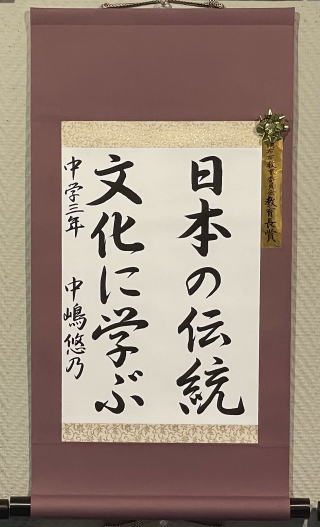 日本の伝統
文化に学ぶ
中学三年 中嶋悠乃
教育委員会教育長賞